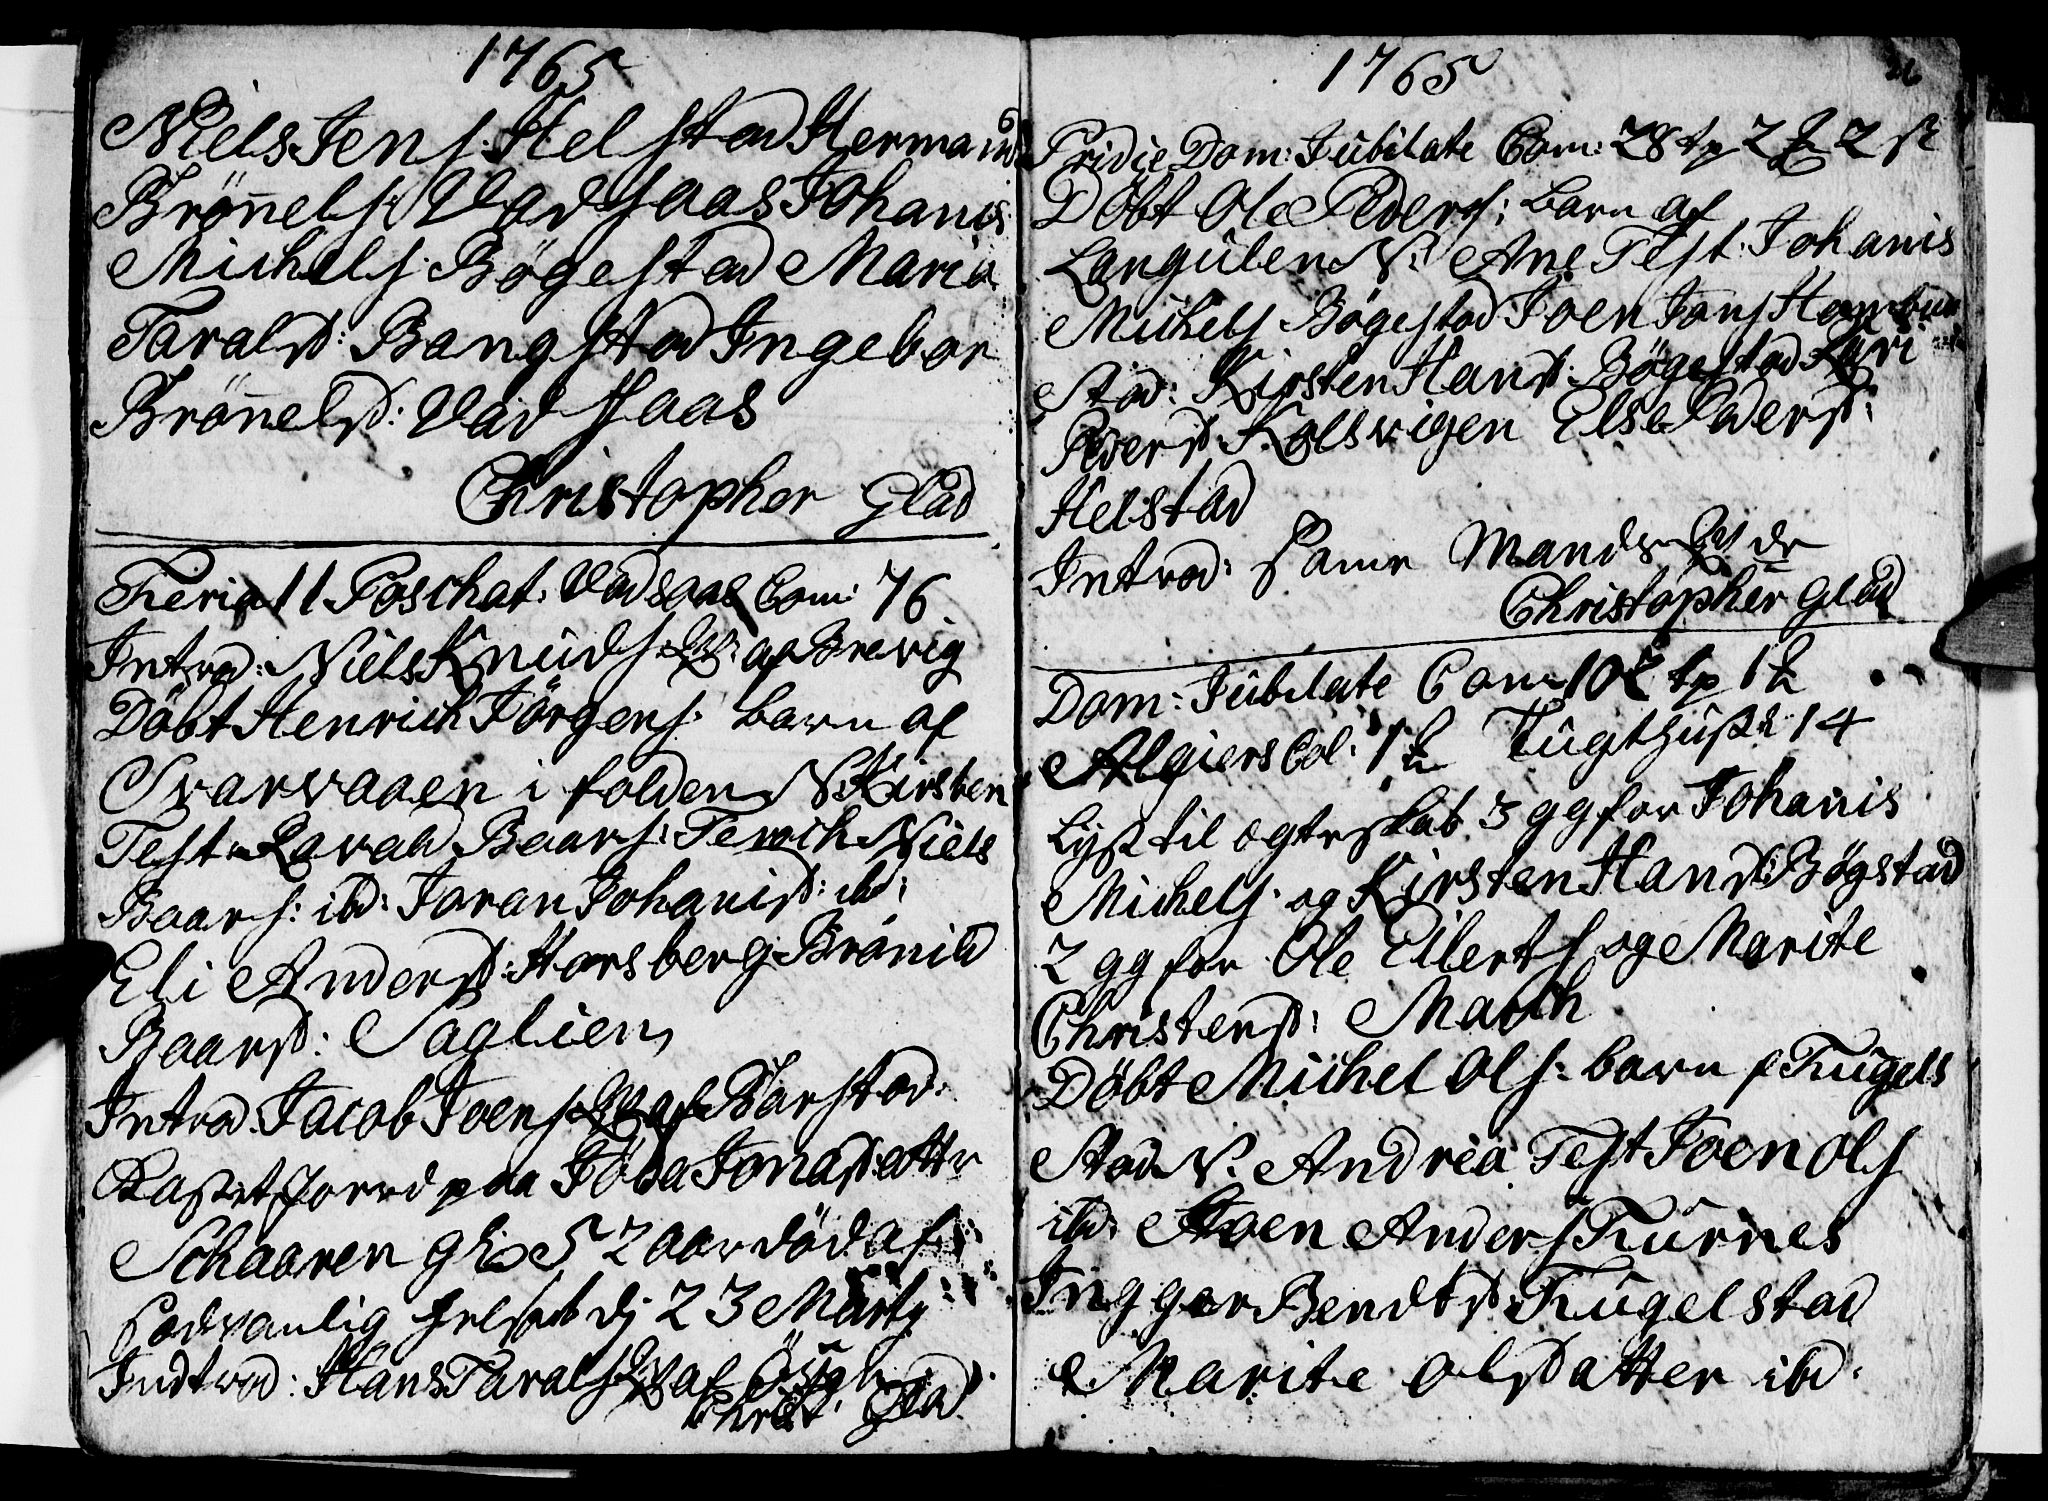 1765
Niels Jens: Helstad Herman
Brönels: Vadsaas Johanis
Michels: Bögestad Maria
Taralsd: Bangstad Ingebor
Brönelsd: Vadsaas
Christopher Glad
Feria 11 Paschat: Vadsaas Com: 76
Introd: Niels Knuds: af Brevig
Döbt Henrich Jörgens: barn af
Svarvaaen i folden N. Kirsten
Test: Baars: Terrich Niels
Baars: ibd: Jaran Johanisd: ibd:
Eli Andersd: Horsberg Brönild
Baarsd: Saglien
Introd: Jacob Joens: af Barstad:
Kastet Jord paa Jonasdattr
Schaaren gl: 52 aar död af
sædvanlig dj 23 Martj
Indtrod: Hans Tarals: af
Christ: Glad
1765
Pridie Dom: Jubilate Com: 28 tp 2 2 s
Döbt Ole Peders: barn af
Langulen N: Ane Test: Johanis
Michels Bögestad Joen Jans
stad: Kirsten Hansd: Bögestad
Pedersd: Kolsvigen Else Pedersd:
Helstad
Introd: samme Mands
Christopher Glad
Dom: Jubilate Com: tp 1
Algiers Col: 1 Tugthuset 14
Lyst til ægteskab 3 gg for Johanis
Michels: og Kirsten Hansd: Bögstad
2 gg for Ole Eilerts og Marite
Christensd: March
Döbt Michel Ols: barn f Fugels
stad N. Andrea Test Joen Ols
ibd: Joen Anders Furnes
Ingger Bendtsd: Fugelstad
Marite olsdatter ibd: